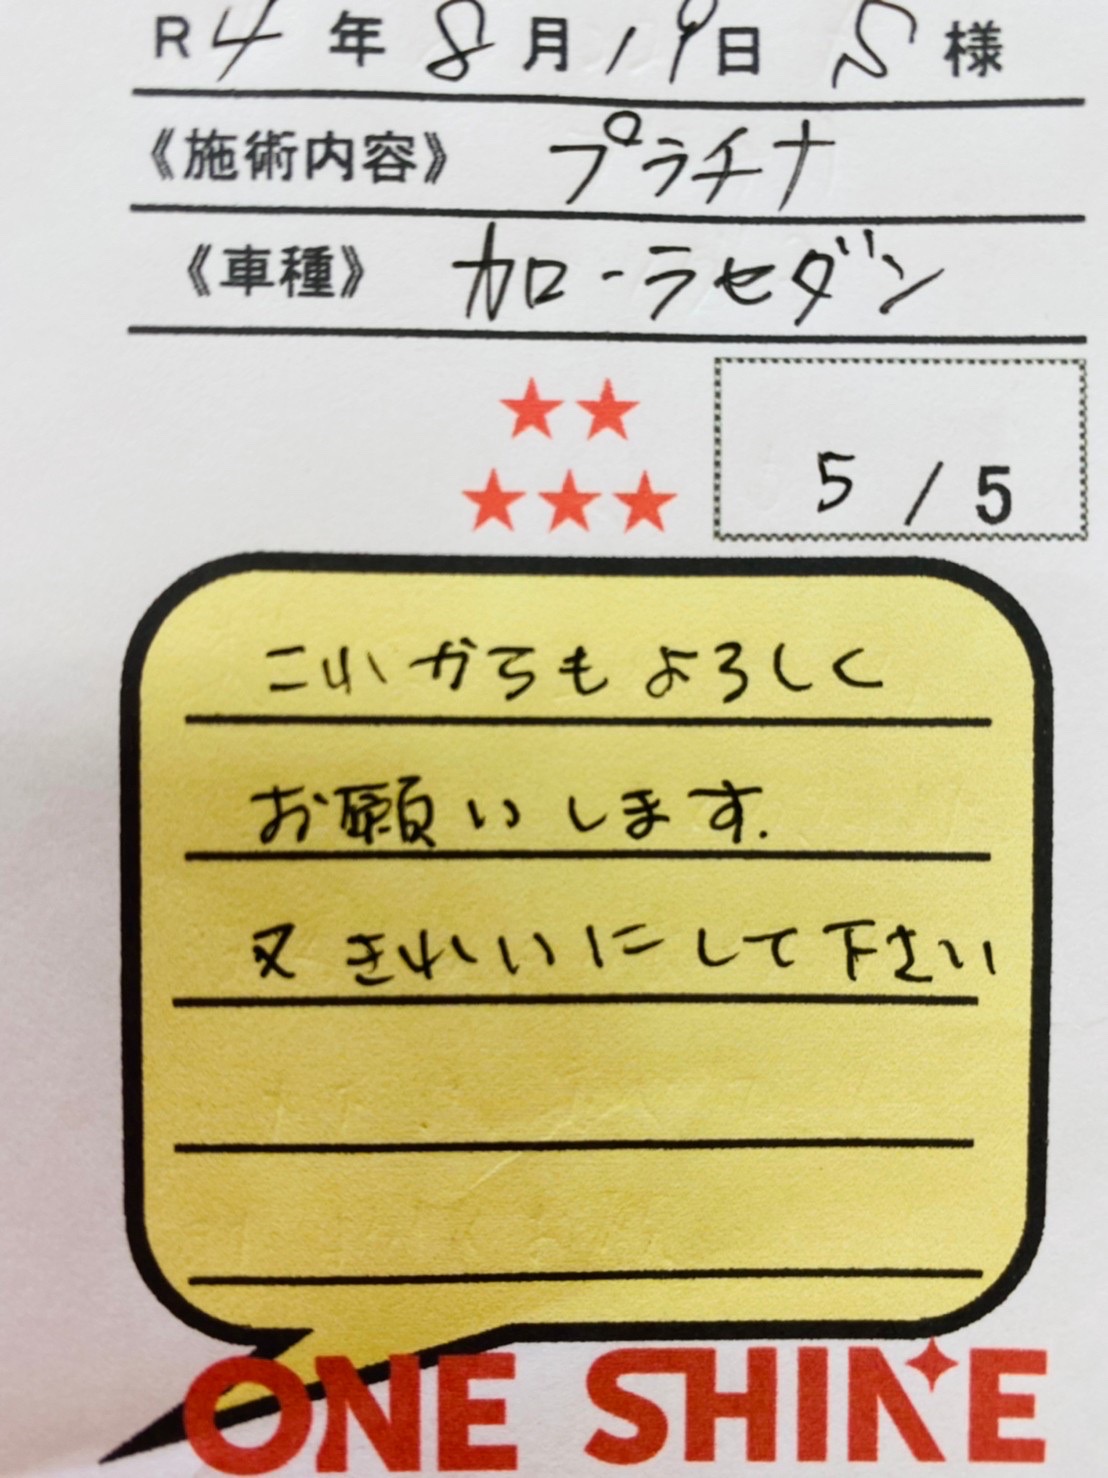 R4年8月19日 S様
《施術内容》 プラチナ
《車種》 カローラセダン
★★
★★★
5/5
これからもよろしく
お願いします.
又きれいにして下さい
ONE SHINE